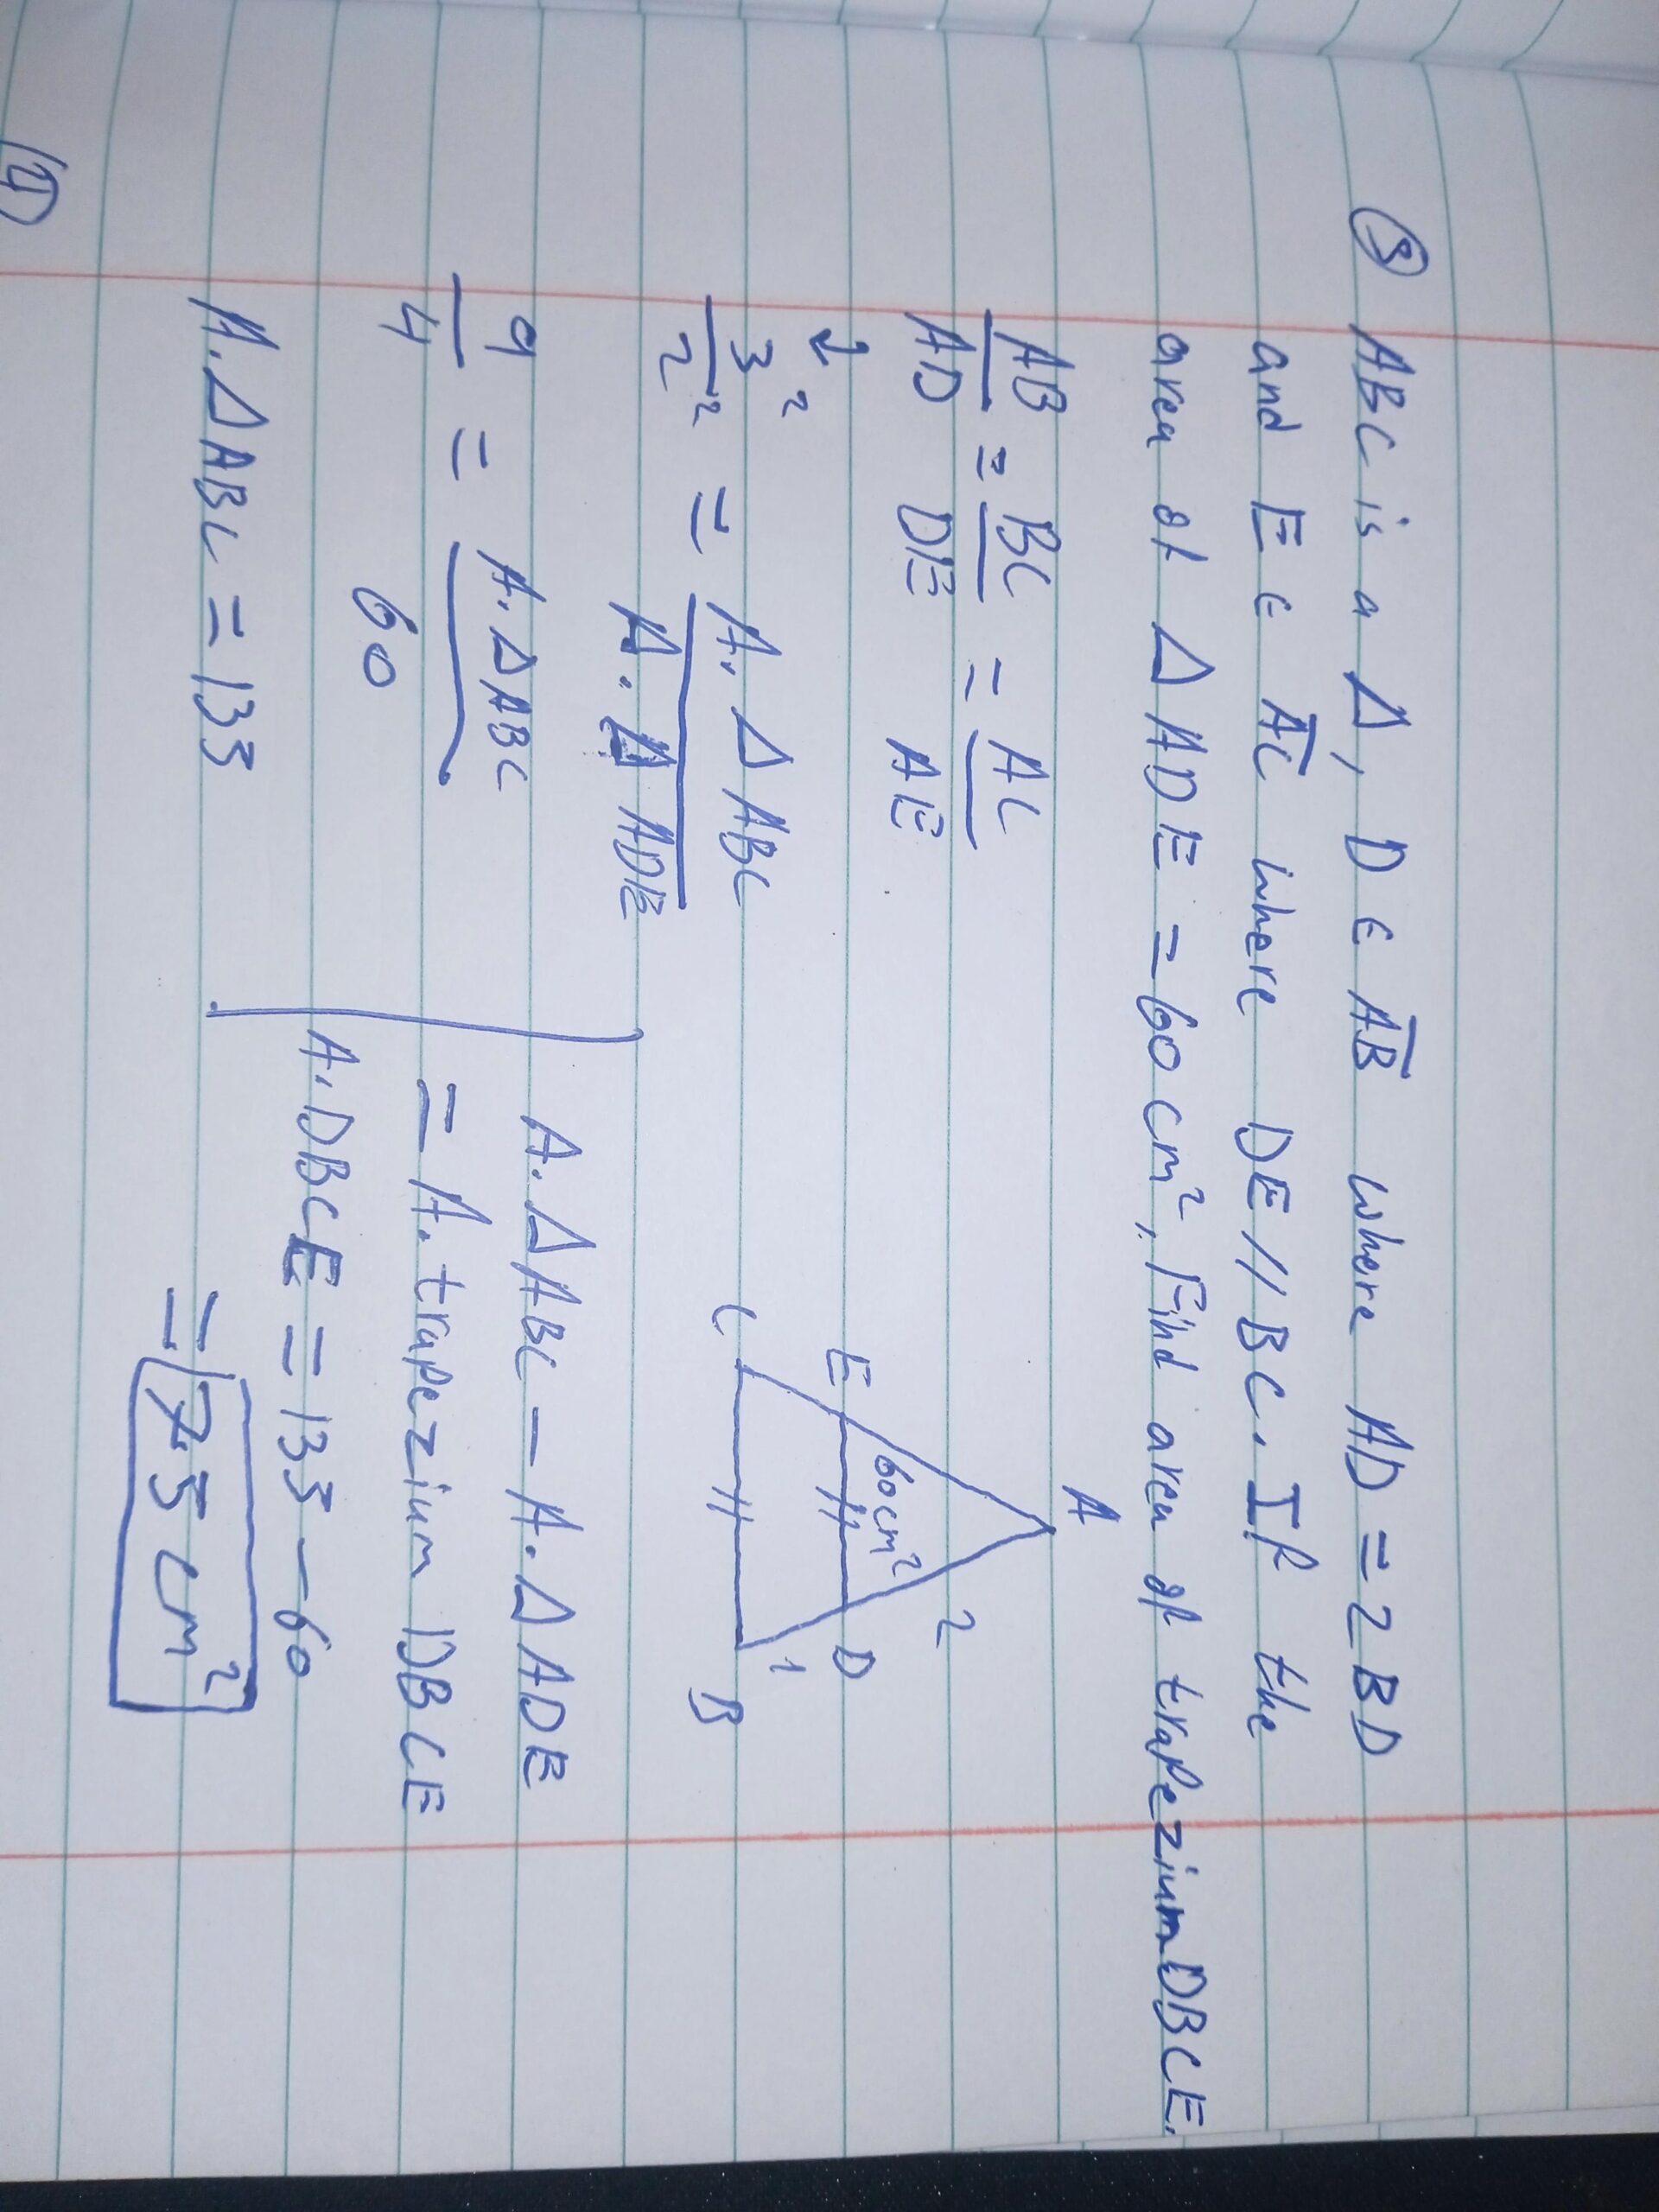 ③ ABC is a Δ, D ∈ AB where AD = 2BD
and E ∈ AC where DE // BC. If the
area of Δ ADE = 60 cm², Find area of trapezium DBCE.
AB/AD = BC/DE = AC/AE
3²/2² = A.Δ ABC/A.Δ ADE
9/4 = A.ΔABC/60
A.ΔABC = 135
A
2
60cm²
E
D
1
C
B
A.ΔABC − A.ΔADE
= A.trapezium DBCE
A.DBCE = 135 − 60
= 75 cm²
④